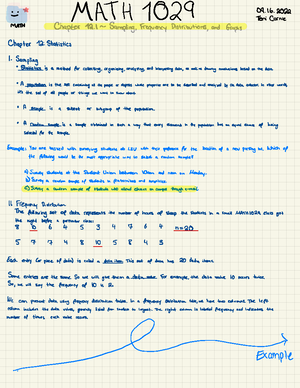 MATH 1029
Chapter 12.1 ~ Sampling, Frequency Distributions, and Graphs
MATH
Chapter 12: Statistics
1. Sampling
• Statistics is a method for collecting, organizing, analyzing, and interpreting data, as well as drawing conclusions based on the data.
• A Population is the set containing all the people or objects whose properties are to be described and analyzed by the data collector. In other words
it's the set of all people or things we want to know about.
• A Sample is a subset or subgroup of the population.
• A Random Sample is a sample obtained in such a way that every element in the population has an equal chance of being
selected for the sample.
the following would be the most appropriate way to select a random sample?
a) Survey students at the Student Union between 10am and 11am on Monday.
b) Survey a random sample of students in fraternities and sororities.
c) Survey a random sample of students
11. Frequency Distribution
The following set of data represents the number of hours of sleep the students in a small MATH 1029 class got
the night before a particular class:
8 10 6 4 5 3 4 7 6 4 n=20
5 7 7 4 8 10 5 8 4 3
Each entry (or piece of data) is called a data item. This set of data has 20 data items.
Some entries are the same. So we will give them a data value. For example, the data value 10 occurs twice.
So, we will say the frequency of 10 is 2.
We can present data using frequency distribution tables. In a frequency distribution table, we have two columns. The left
column includes the data values, generally listed from smallest to largest. The right column is labeled frequency and indicates the
number of times each value occurs.
Example